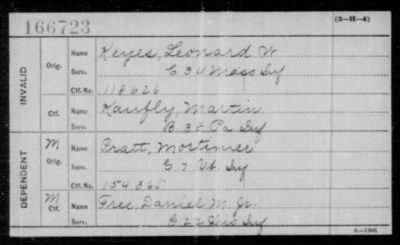 166723
(3-H-4)
INVALID
Orig.
Name Keyes, Leonard W
Serv. G 34 Mass Inf
Ctf. No. 118626
Ctf.
Name Kaufly, Martin
Serv. B 38 Pa Inf
DEPENDENT
M
Orig.
Name Pratt, Mortimer
Serv. G 7 Vt. Inf
Ctf. No. 154865
M
Ctf.
Name Free, Daniel M. Jr.
Serv. Inf